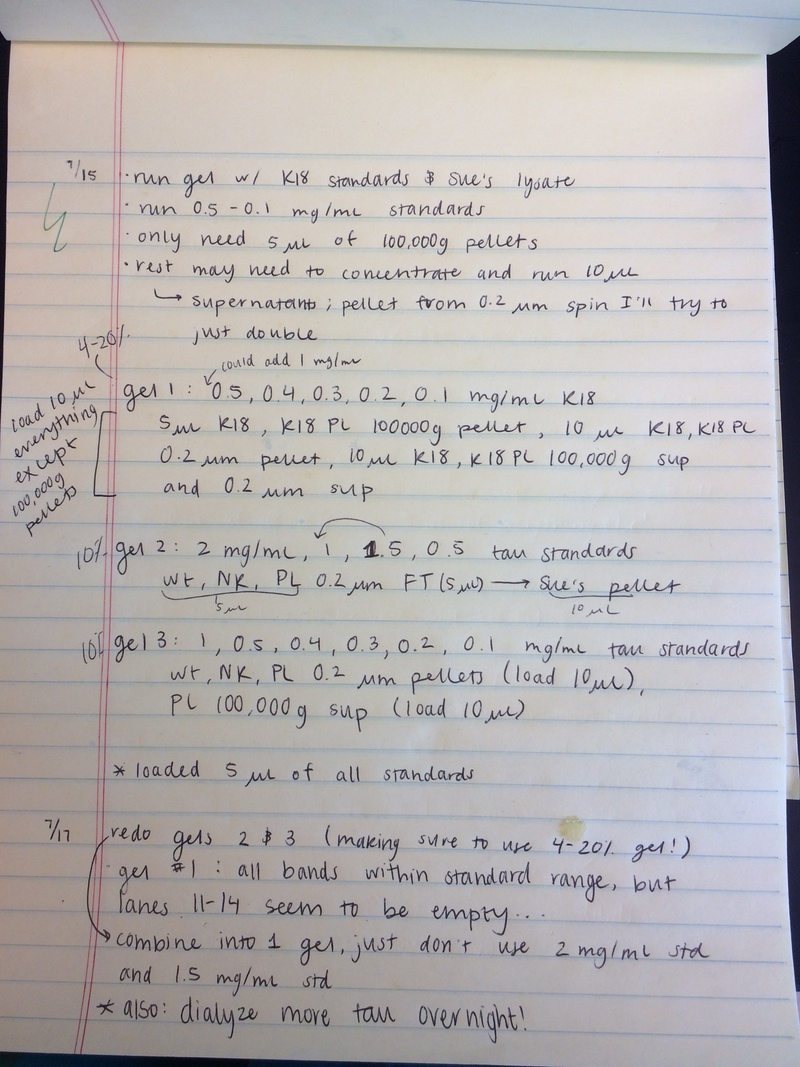 7/15 · run gel w/ K18 standards & Sue's lysate
· run 0.5 - 0.1 mg/mL standards
· only need 5 µL of 100,000g pellets
· rest may need to concentrate and run 10 µL
↳ supernatant ; pellet from 0.2 µm spin I'll try to
just double
4-20%
could add 1 mg/mL
gel 1 : 0.5, 0.4, 0.3, 0.2, 0.1 mg/mL K18
5 µL K18, K18 PL 100000g pellet, 10 µL K18, K18 PL
0.2 µm pellet, 10 µL K18, K18 PL 100,000g sup
and 0.2 µm sup
load 10 µL
everything
except
100,000g
pellets
10% gel 2 : 2 mg/mL, 1, 1.5, 0.5 tau standards
Wt, NK, PL 0.2 µm FT (5 µL) → Sue's pellet
5 µL 10 µL
10% gel 3 : 1, 0.5, 0.4, 0.3, 0.2, 0.1 mg/mL tau standards
Wt, NK, PL 0.2 µm pellets (load 10 µL),
PL 100,000g sup (load 10 µL)
* loaded 5 µL of all standards
7/17 redo gels 2 & 3 (making sure to use 4-20% gel!)
· gel #1 : all bands within standard range, but
lanes 11-14 seem to be empty...
→ combine into 1 gel, just don't use 2 mg/mL std
and 1.5 mg/mL std
* also: dialyze more tau overnight!